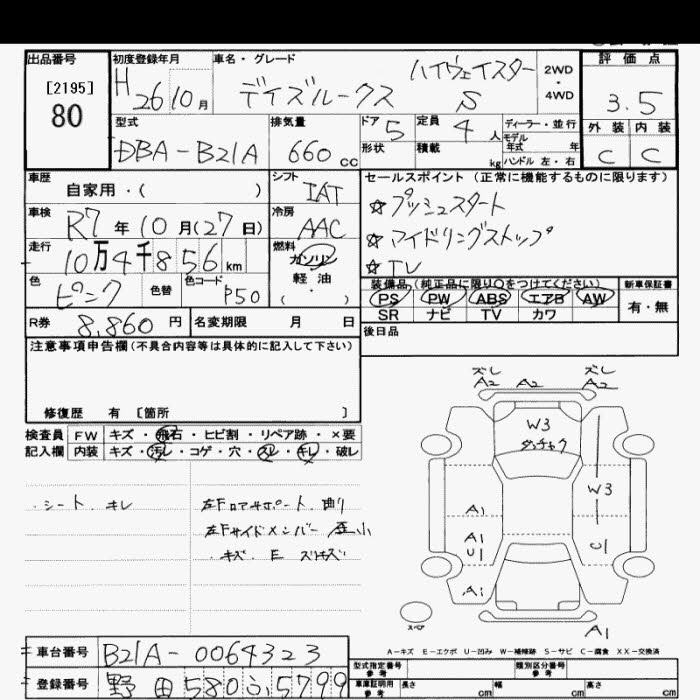 出品番号 [2195] 80
初度登録年月 H 26 10 月
車名・グレード デイズルークス ハイウェイスター S
2WD ・ 4WD
評価点 3.5
外装 C 内装 C
型式 DBA-B21A
排気量 660 cc
ドア 5 定員 4 人
形状 積載 kg
ディーラー・並行
モデル年式 年
ハンドル 左・右
車歴 自家用・( )
シフト IAT
車検 R7 年 10 月(27 日)
冷房 AAC
走行 10万4千856 km
燃料 ガソリン ・ 軽油 ( )
色 ピンク 色替 色コード P50
R券 8,860 円 名変期限 月 日
セールスポイント(正常に機能するものに限ります)
☆プッシュスタート
☆アイドリングストップ
☆TV
装備品(純正品に限り○をつけてください) 新車保証書
PS PW ABS エアB AW 有・無
SR ナビ TV カワ
後日品
注意事項申告欄(不具合内容等は具体的に記入して下さい)
修復歴 有 [箇所 ]
検査員 FW キズ・飛石・ヒビ割・リペア跡・×要
記入欄 内装 キズ・汚レ・コゲ・穴・スレ・キレ・破レ
・シート キレ
左Fロアサポート 曲り
左Fサイドメンバー 歪小
・キズ E スリキズ
ズレ A2 A2 ズレ A2
W3
W3
A1
A1 U1
C1
A1
A1
スペア
A-キズ E-エクボ U-凹み W-補修跡 S-サビ C-腐食 XX-交換済
車台番号 B21A-0064323
登録番号 野田 580 ふ 5799
型式指定番号 参考 類別区分番号 参考
車庫証明用 参考 長さ cm 幅 cm 高さ cm